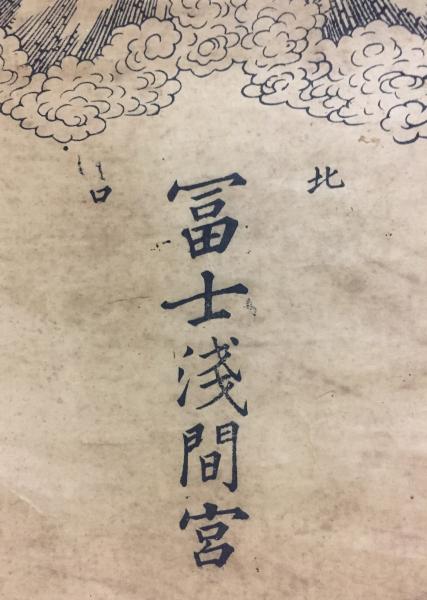 北口
冨士淺間宮